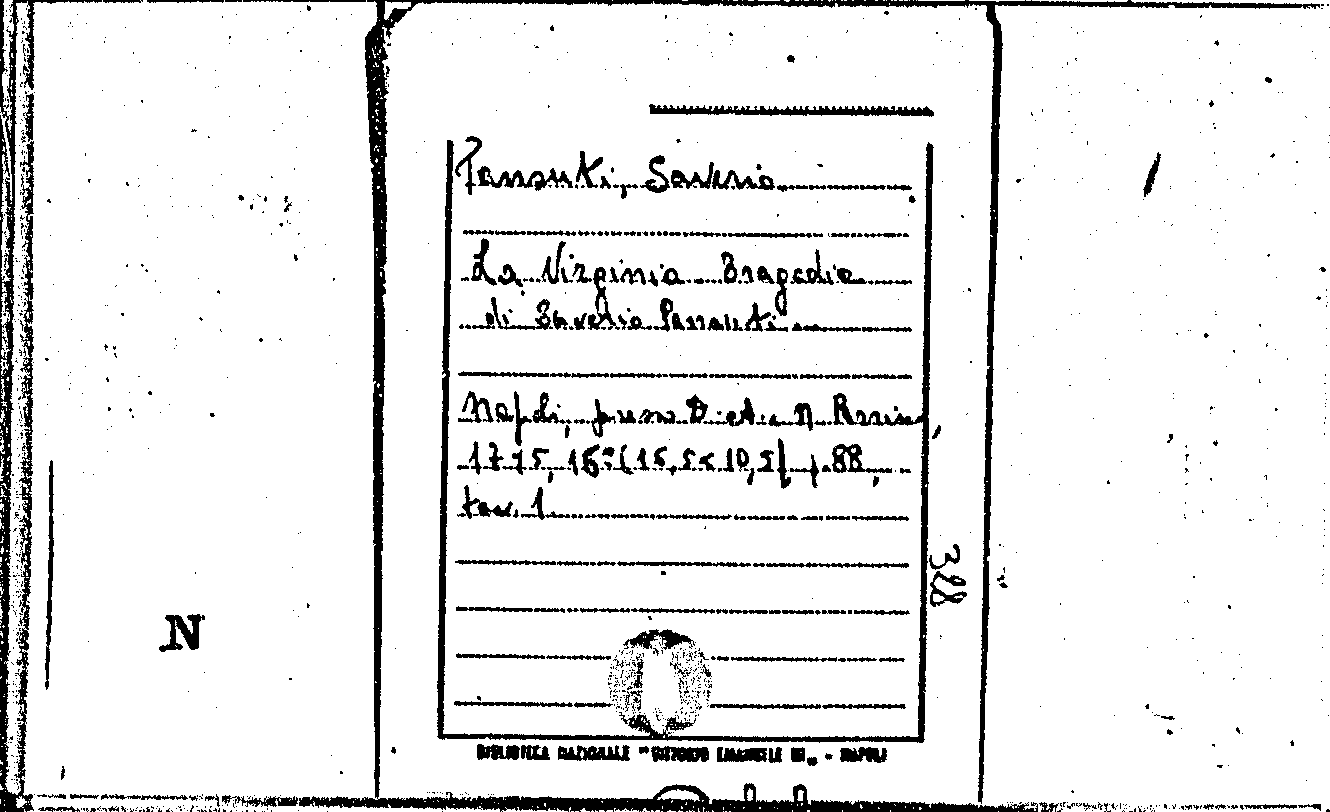 Pansuti, Saverio
La Virginia Tragedia
di Saverio Pansuti
Napoli, presso D. et A. N. Parrino,
1725, 16° (15,5 x 10,5), p. 88,
tav. 1.
388
N
BIBLIOTECA NAZIONALE "VITTORIO EMANUELE III" - NAPOLI